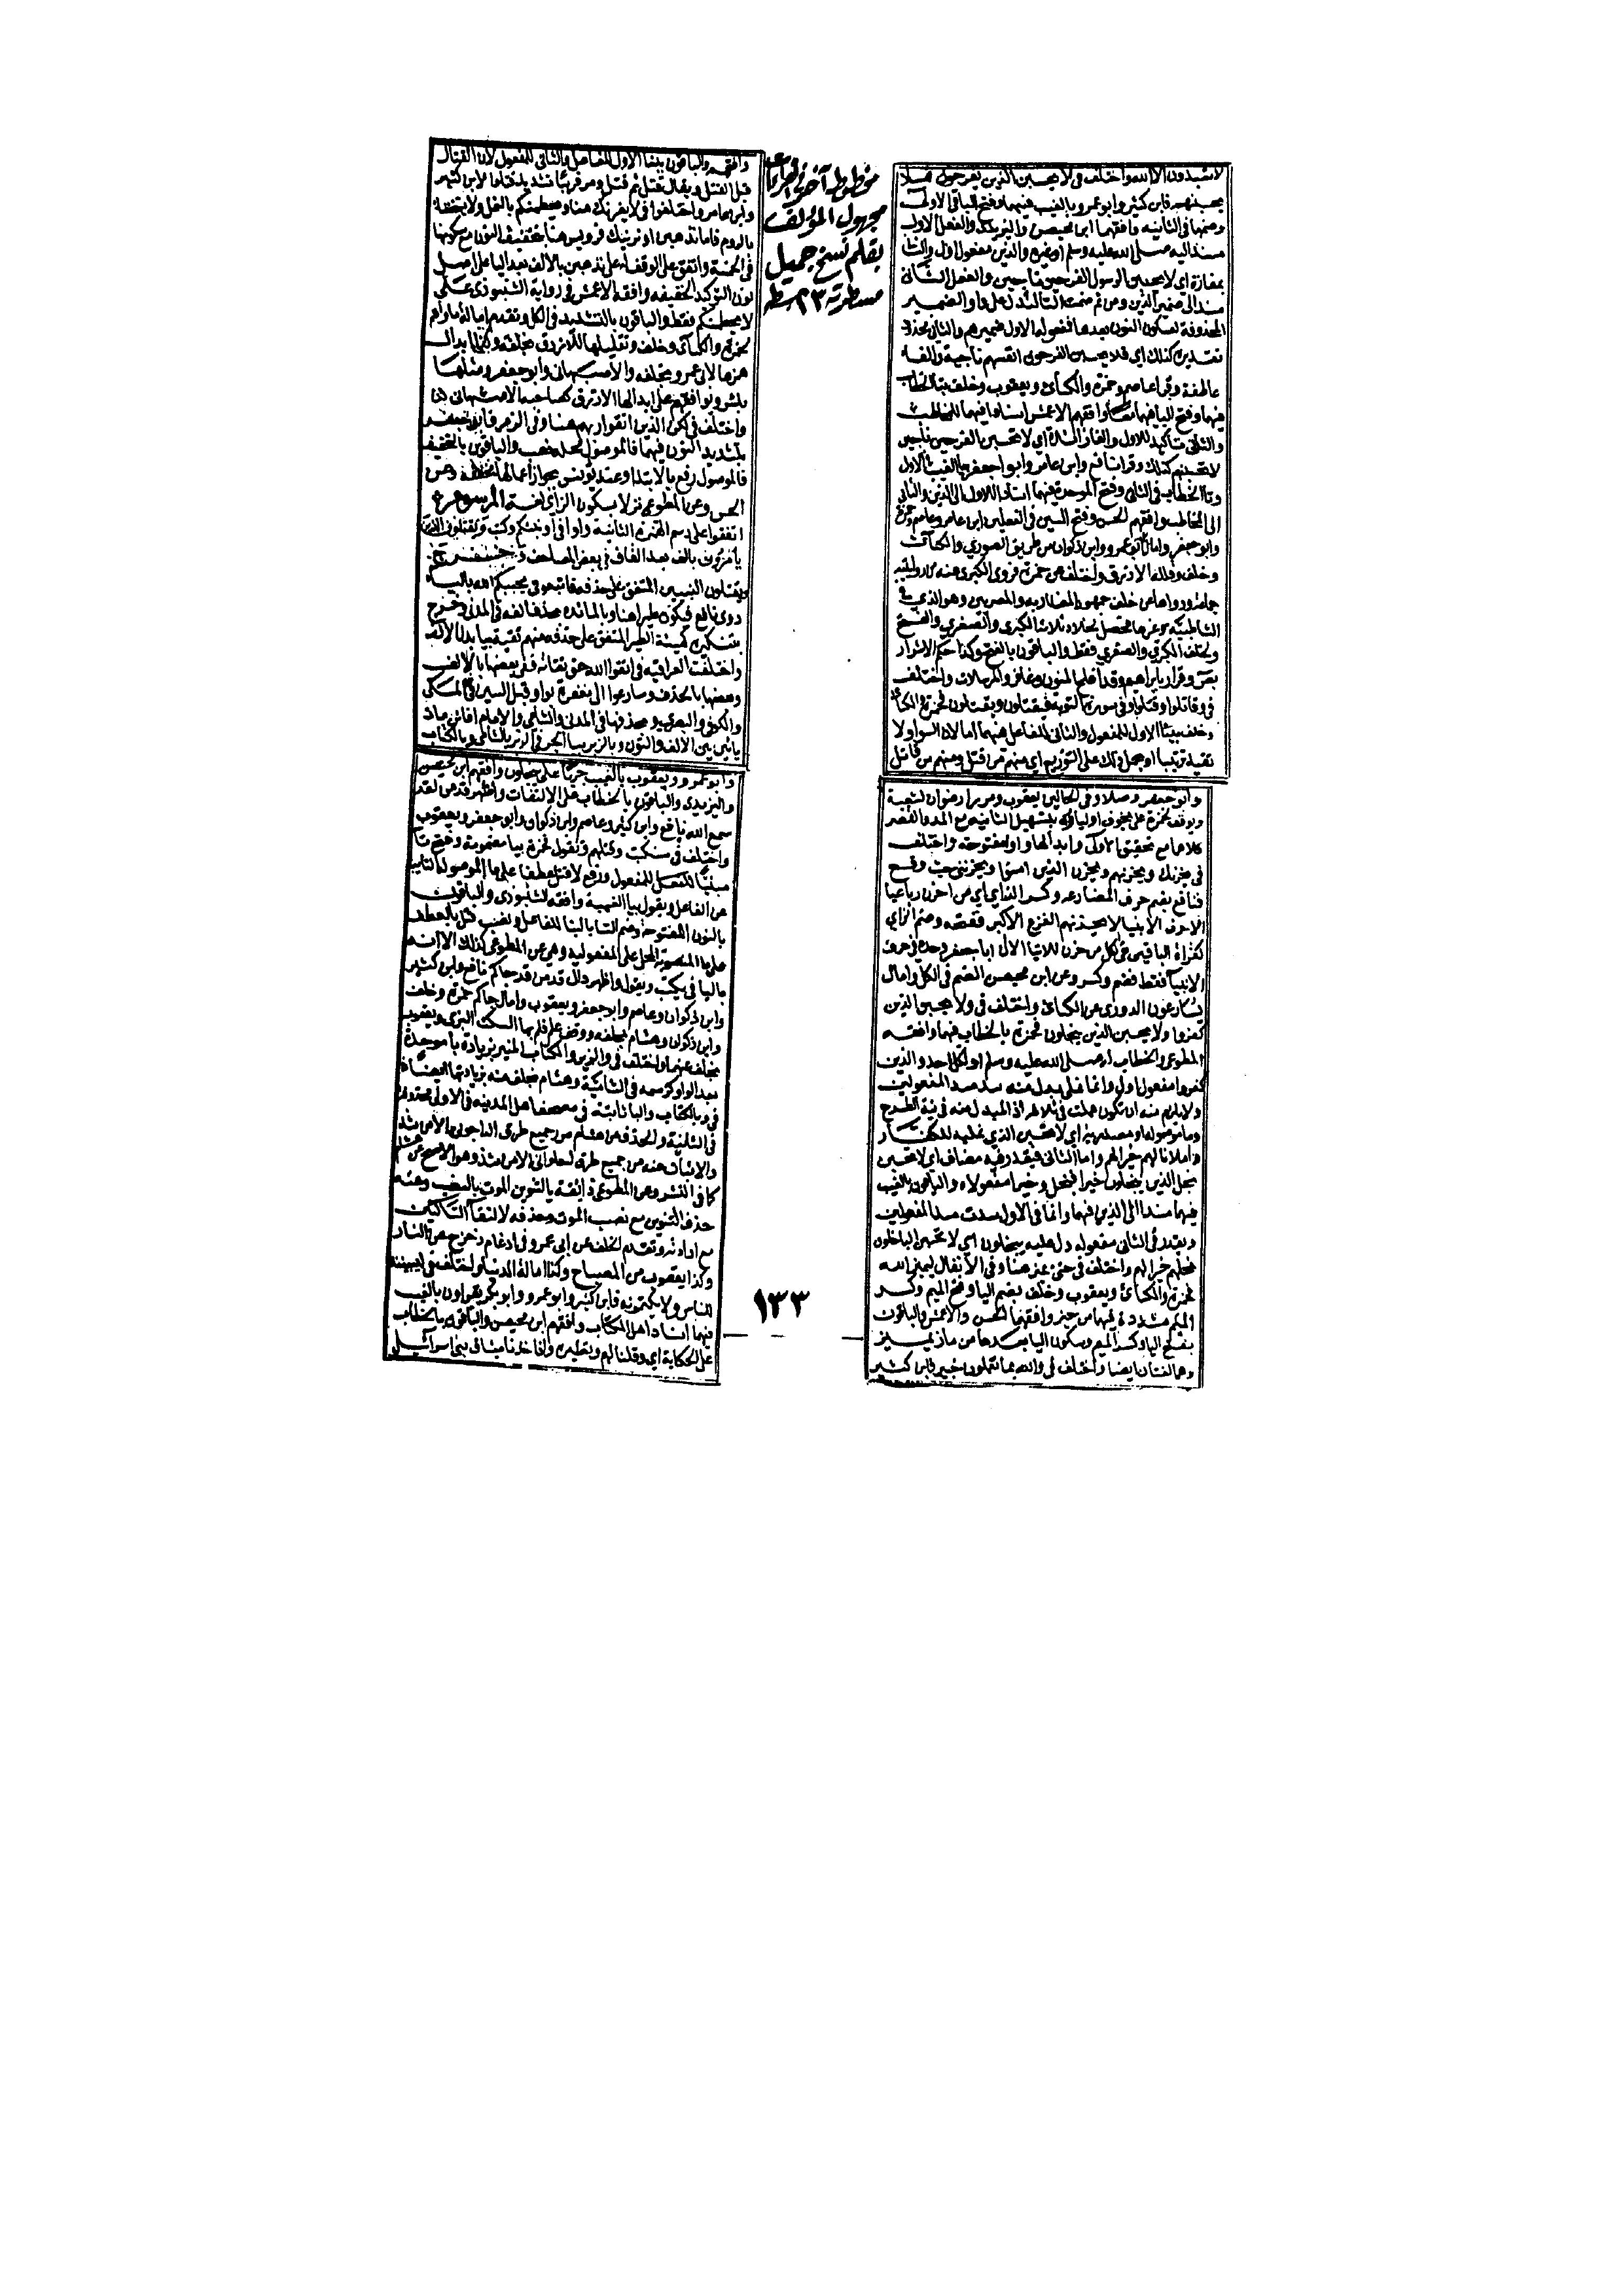 لا تعبدون الا الله واختلف في لا يحسبن الذين يفرحون فلا
يحسبنهم فابن كثير وابو عمرو بالغيب فيهما وفتح الباء في الاولى
وضمها في الثانية وافقهما ابن محيصن واليزيدي والفعل الاول
مسند اليه صلى الله عليه وسلم او غيره والذين مفعول اول والثاني
بمفازة اي لا يحسبن الرسول الفرحين ناجين والفعل الثاني
مسند الى ضمير الذين ومن ثم ضمت الباء لتدل على واو الضمير
المحذوفة لسكون النون بعدها فمفعوله الاول ضميرهم والثاني محذوف
تقديره كذلك اي فلا يحسبن الفرحون انفسهم ناجية والفاء
عاطفة وقرا عاصم وحمزة والكسائي ويعقوب وخلف بتا الخطاب
فيهما وفتح الباء فيهما معا وافقهم الاعمش اسنادا فيهما للمخاطب
والثاني تاكيد للاول والفاء زائدة اي لا تحسبن الفرحين ناجين
لا تحسبنهم كذلك وقرا نافع وابن عامر وابو جعفر بيا الغيب في الاول
وتا الخطاب في الثاني وفتح الموحدة فيهما اسنادا للاول الى الذين والثاني
الى المخاطب وافقهم الحسن وفتح السين في الفعلين ابن عامر وعاصم وحمزة
وابو جعفر وامال ابو عمرو وابن ذكوان من طريق الصوري والكسائي
وخلف وقلله الازرق واختلف عن حمزة فروى الكبرى عنه من روايتيه
جماعة ورواها عن خلف جمهور المغاربة والمصريين وهو الذي في
الشاطبية وغيرها فحصل لخلاد ثلاثة الكبرى والصغرى والفتح
ولخلف الكبرى والصغرى فقط والباقون بالفتح وكذا حكم الاشرار
بص وقرار بابراهيم وقد افلح المنون وغافر والمرسلات واختلف
في وقاتلوا وقتلوا وفي سورة التوبة فيقتلون ويقتلون فحمزة والكسائي
وخلف ببنا الاول للمفعول والثاني للفاعل فيهما اما لان الواو لا
تفيد ترتيبا او يحمل ذلك على التوزيع اي منهم من قتل ومنهم من قاتل
مخطوط آخر في القراءات
مجهول المؤلف
بقلم نسخ جميل
مسطرته ٢٣ سطر
والباقون ببنا الاول للفاعل والثاني للمفعول لان القتال
قبل القتل ويقال قتل ثم قتل ومر قريبا تشديد قتلوا لابن كثير
وابن عامر واختلفوا في لا يغرنك هنا و يحطمنكم بالنمل ولا يستخفنك
بالروم فاما نذهبن او نرينك فرويس هنا بتخفيف النون مع سكونها
في الخمسة واتفق على الوقف له على نذهبن بالالف بعد الباء على اصل
نون التوكيد الخفيفة وافقه الاعمش في رواية الشنبوذي على
لا يحطمنكم فقط والباقون بالتشديد في الكل وتقدم امالة ماواهم
لحمزة والكسائي وخلف وتقليلها للازرق بخلفه وكذا ابدال
همزها لابي عمرو بخلفه والاصبهاني وابو جعفر ومثلها
بئس ويوافقهم على ابدالها الازرق كصاحبه الاصبهاني
واختلف في لكن الذين اتقوا ربهم هنا وفي الزمر فابو جعفر
بتشديد النون فيهما فالموصول محله نصب والباقون بالتخفيف
فالموصول رفع بالابتدا وعند يونس يجوز اعمالها مخففة وعن
الحسن وعن المطوعي نزلا بسكون الزاي لغة المرسوم
اتفقوا على رسم الهمزة الثانية واوا في اونبئكم وكتب ويقتلون الذين
يامرون بالف بعد القاف في بعض المصاحف
ويقتلون النبيين المتفق على حذفه فاتبعوني يحببكم الله بالياء
روى نافع فيكون طيرا هنا وبالمائدة بحذف الفه في المدني وخرج
بتنكيره كهيئة الطير المتفق على حذفه منهم تقية بيا بدل الالف
واختلفت العراقية في اتقوا الله حق تقاته ففي بعضها بالالف
وبعضها بالحذف وسارعوا الى مغفرة بواو قبل السين في المكي
والكوفي والبصري وبحذفها في المدني والشامي والامام افائن مات
بيائين بين الالف والنون وبالزبر ببا الجر في الزبر بالشامي وبالكتاب
وابو جعفر وصلا وفي الحالين يعقوب ومر را رضوان لشعبة
ويوقف لحمزة على يخوف اولياءه بتسهيل الثانية مع المد والقصر
كلاهما مع تحقيق الاولى وابدالها واوا مفتوحة واختلف
في يحزنك ويحزنهم ويحزن الذين امنوا ويحزنني حيث وقع
فنافع بضم حرف المضارعه وكسر الزاي اي من احزن رباعيا
الا حرف الانبيا لا يحزنهم الفزع الاكبر ففتحه وضم الزاي
كقراة الباقين في كل من حزن ثلاثيا الا ان ابا جعفر وحده في حرف
الانبيا فقط فضم وكسر وعن ابن محيصن الضم في الكل وامال
يسارعون الدوري عن الكسائي واختلف في ولا يحسبن الذين
كفروا ولا يحسبن الذين يبخلون فحمزة بالخطاب فيهما وافقه
المطوعي والخطاب له صلى الله عليه وسلم او لكل احد والذين
كفروا مفعول اول وانما نملي بدل منه سد مسد المفعولين
ولا يلزم منه ان تكون عملت في ثلاثة اذ المبدل منه في نية الطرح
وما موصولة او مصدرية اي لا تحسبن الذي نمليه للكفار
او املانا لهم خيرا لهم واما الثاني فيقدر فيه مضاف اي لا تحسبن
بخل الذين يبخلون خيرا فبخل وخيرا مفعولاه والباقون بالغيب
فيهما مسندا الى الذين فيهما وانما في الاول سدت مسد المفعولين
ويقدر في الثاني مفعول دل عليه يبخلون اي لا يحسبن الباخلون
بخلهم خيرا لهم واختلف في حتى يميز هنا وفي الانفال ليميز الله
فحمزة والكسائي ويعقوب وخلف بضم اليا وفتح الميم وكسر
اليا مشددة فيهما من ميز وافقهم الحسن والاعمش والباقون
بفتح اليا وكسر الميم وسكون اليا بعدها من ماز يميز
وهما لغتان ايضا واختلف في والله بما تعملون خبير فابن كثير
وابو عمرو ويعقوب بالغيب جريا على يبخلون وافقهم ابن محيصن
واليزيدي والباقون بالخطاب على الالتفات واظهر قد من لقد
سمع الله نافع وابن كثير وعاصم وابن ذكوان وابو جعفر ويعقوب
واختلف في سنكتب وقتلهم ونقول فحمزة بيا مضمومة وفتح تا
مبنيا للمفعول ورفع لام قتل عطفا على ما الموصولة النايبة
عن الفاعل ويقول بيا الغيبة وافقه الشنبوذي والباقون
بالنون المفتوحة وضم التا بالبنا للفاعل ونصب قتل بالعطف
على ما المنصوبة المحل على المفعولية وعن المطوعي كذلك الا انه
باليا في يكتب ويقول واظهر دال قد من قد جاكم نافع وابن كثير
وابن ذكوان وعاصم وابو جعفر ويعقوب وامال جاكم حمزة وخلف
وابن ذكوان وهشام بخلفه ووقف على فلم بها السكت البزي ويعقوب
بخلف عنهما واختلف في والزبر والكتاب المنير بزيادة با موحدة
بعد الواو كرسمه في الشامية وهشام بخلف عنه بزيادتها ايضا
في وبالكتاب والبا ثابتة في مصحف اهل المدينة في الاولى محذوفة
في الثانية والحذف عن هشام من جميع طرق الداجوني الا من شذ
والاثبات عنه من جميع طرق الحلواني الا من شذ وهو الاصح عن هشام
كما في النشر وعن المطوعي ذائقة بالتنوين الموت بالنصب وعنه
حذف التنوين مع نصب الموت وحذفه لالتقا الساكنين
مع ارادته وتقدم الخلف عن ابي عمرو في ادغام زحزح عن النار
وكذا يعقوب من المصباح وكذا امالة الدنيا واختلف في ليبيننه
للناس ولا يكتمونه فابن كثير وابو عمرو وابو بكر يقراون بالغيب
فيهما اسنادا لاهل الكتاب وافقهم ابن محيصن والباقون بالخطاب
على الحكاية اي وقلنا لهم ونظيره واذ اخذنا ميثاق بني اسرائيل
١٣٣